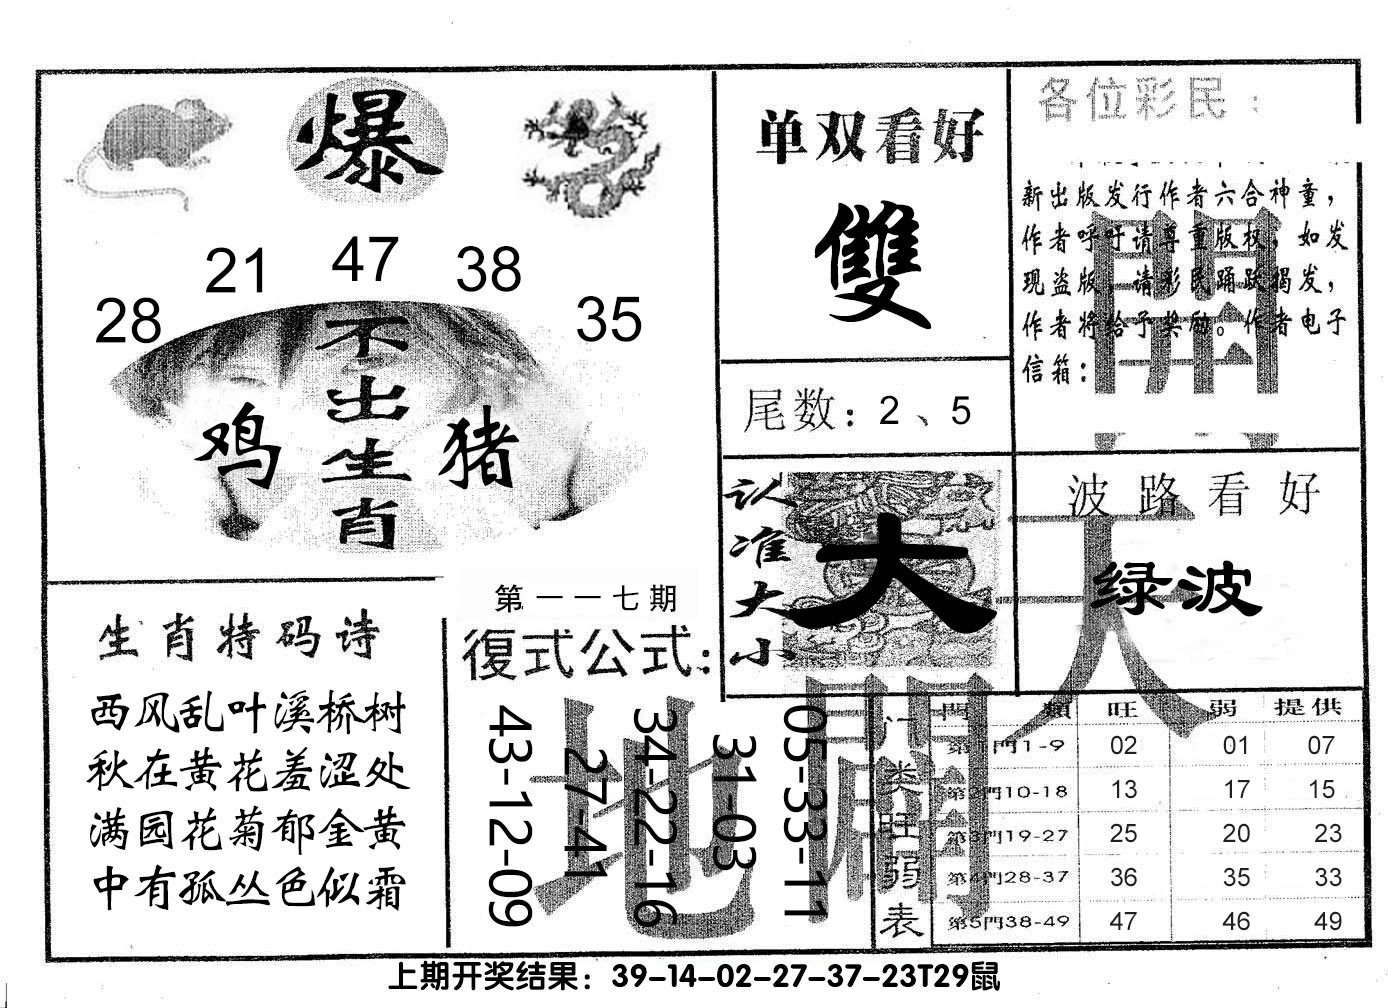 爆
28 21 47 38 35
不出生肖
鸡 猪
单双看好
雙
尾数：2、5
各位彩民：
新出版发行作者六合神童，
作者呼吁请尊重版权，如发
现盗版，请彩民踊跃揭发，
作者将给予奖励。作者电子
信箱：
認准大小
大
波路看好
绿波
生肖特码诗
西风乱叶溪桥树
秋在黄花羞涩处
满园花菊郁金黄
中有孤丛色似霜
第一一七期
復式公式：
43-12-09
27-41
34-22-16
31-03
05-33-11
天地開
門類旺弱表
門類 旺 弱 提供
第1門1-9 02 01 07
第2門10-18 13 17 15
第3門19-27 25 20 23
第4門28-37 36 35 33
第5門38-49 47 46 49
上期开奖结果：39-14-02-27-37-23T29鼠